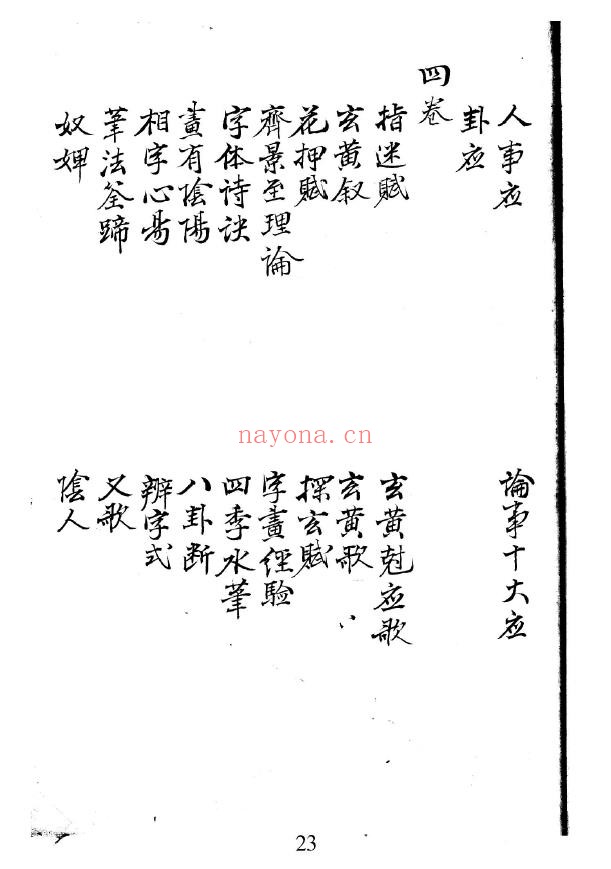 人事应
論事十大应
卦应
四卷
指迷賦
玄黄尅应歌
玄黄叙
玄黄歌
花押賦
探玄賦
齊景至理論
字畫經驗
字体诗诀
四季水筆
畫有陰陽
八卦断
相字心易
辨字式
筆法筌蹄
又歌
奴婢
陰人
nayona.cn
23